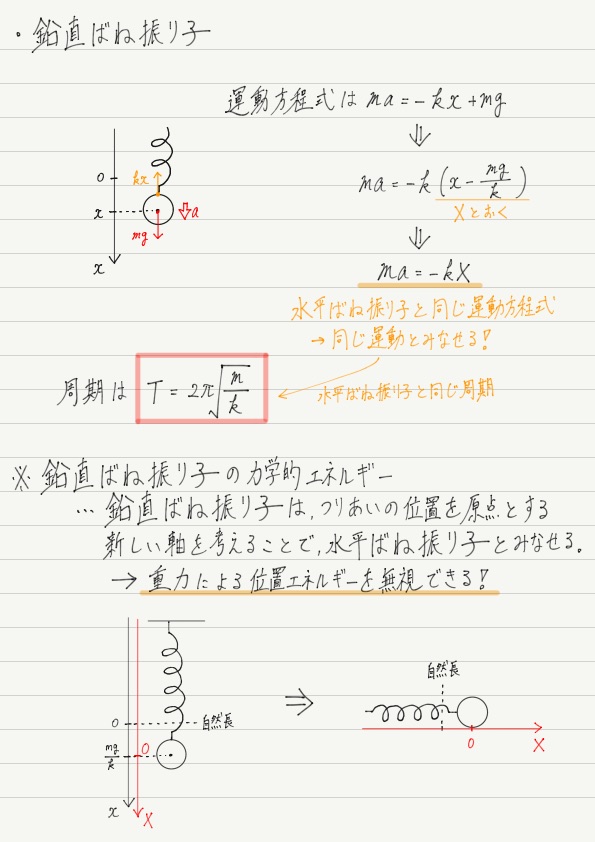 ・鉛直ばね振り子
運動方程式は ma = -kx + mg
⇓
ma = -k(x - mg/k)
Xとおく
⇓
ma = -kX
水平ばね振り子と同じ運動方程式
→ 同じ運動とみなせる!
0
kx
x
a
mg
x
周期は T = 2π√(m/k)
水平ばね振り子と同じ周期
※ 鉛直ばね振り子の力学的エネルギー
… 鉛直ばね振り子は,つりあいの位置を原点とする
新しい軸を考えることで,水平ばね振り子とみなせる。
→ 重力による位置エネルギーを無視できる!
0
自然長
mg/k
0
x
X
⇒
自然長
0
X